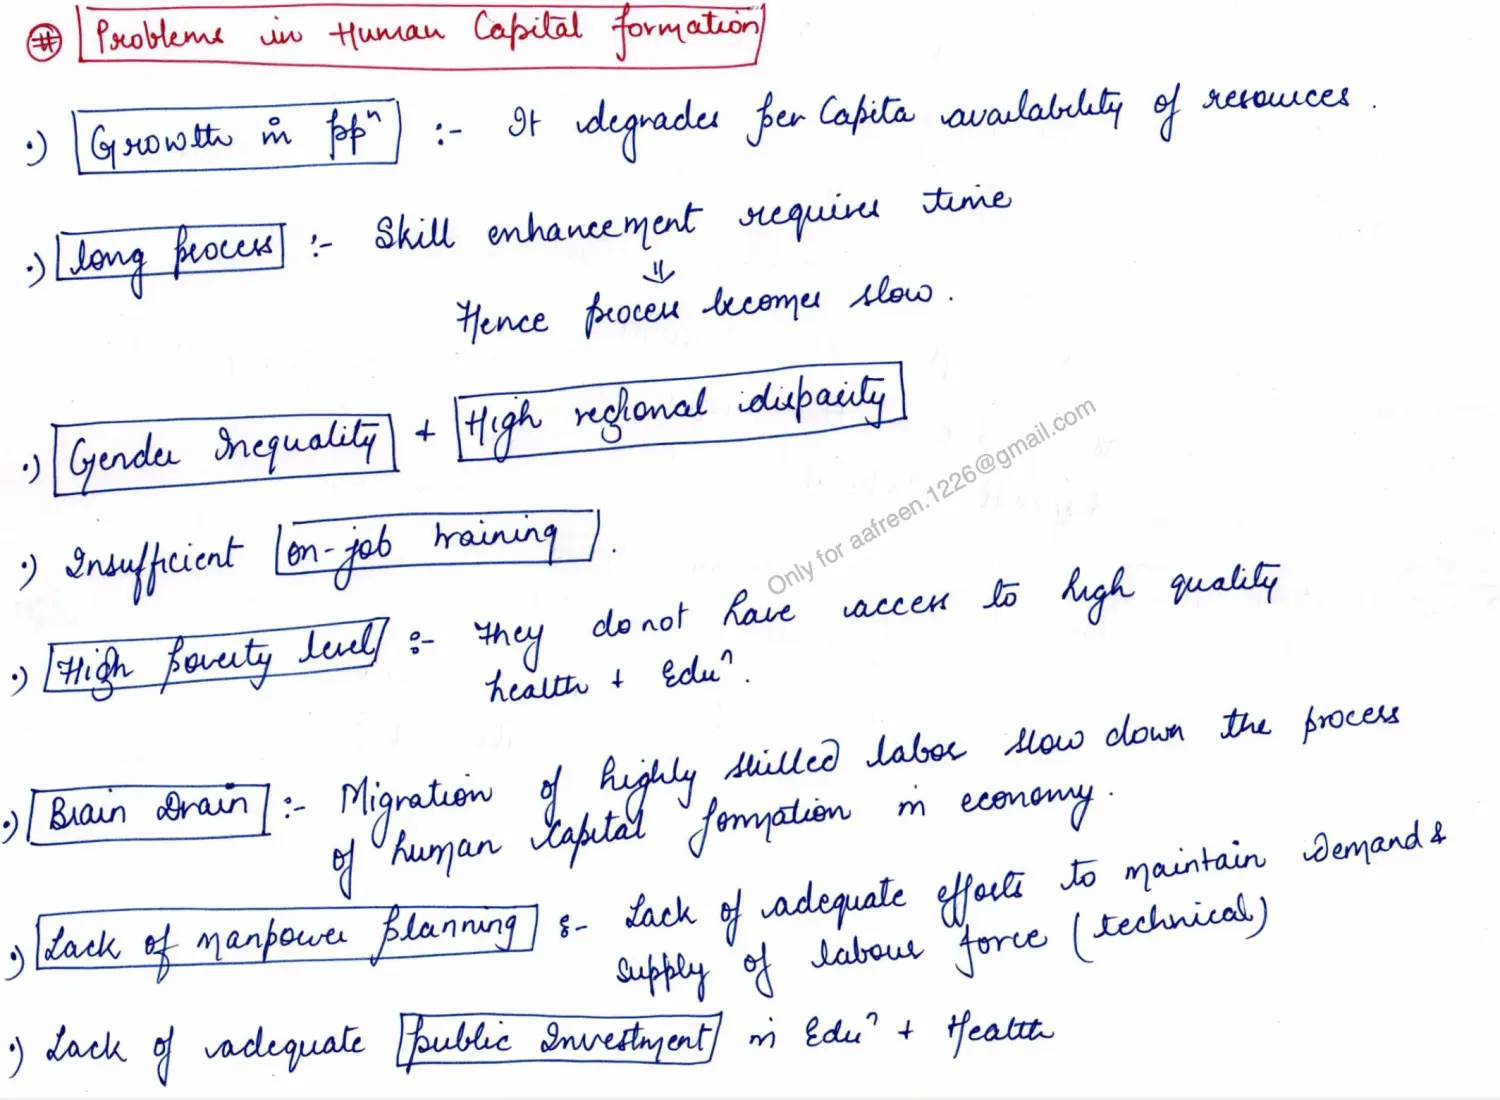 # Problems in Human Capital formation
·) Growth in ppⁿ :- It degrades per Capita availability of resources.
·) long process :- Skill enhancement requires time
⇓
Hence process becomes slow.
·) Gender Inequality + High regional disparity
·) Insufficient on-job training.
·) High poverty level :- They do not have access to high quality
health + Eduⁿ.
·) Brain Drain :- Migration of highly skilled labor slow down the process
of human capital formation in economy.
·) Lack of manpower planning :- Lack of adequate efforts to maintain Demand &
supply of labour force (technical)
·) Lack of adequate public Investment in Eduⁿ + Health
Only for aafreen.1226@gmail.com